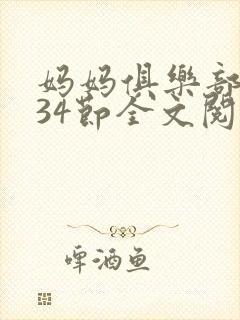 妈妈俱樂部
34節全文閱
啤酒鱼